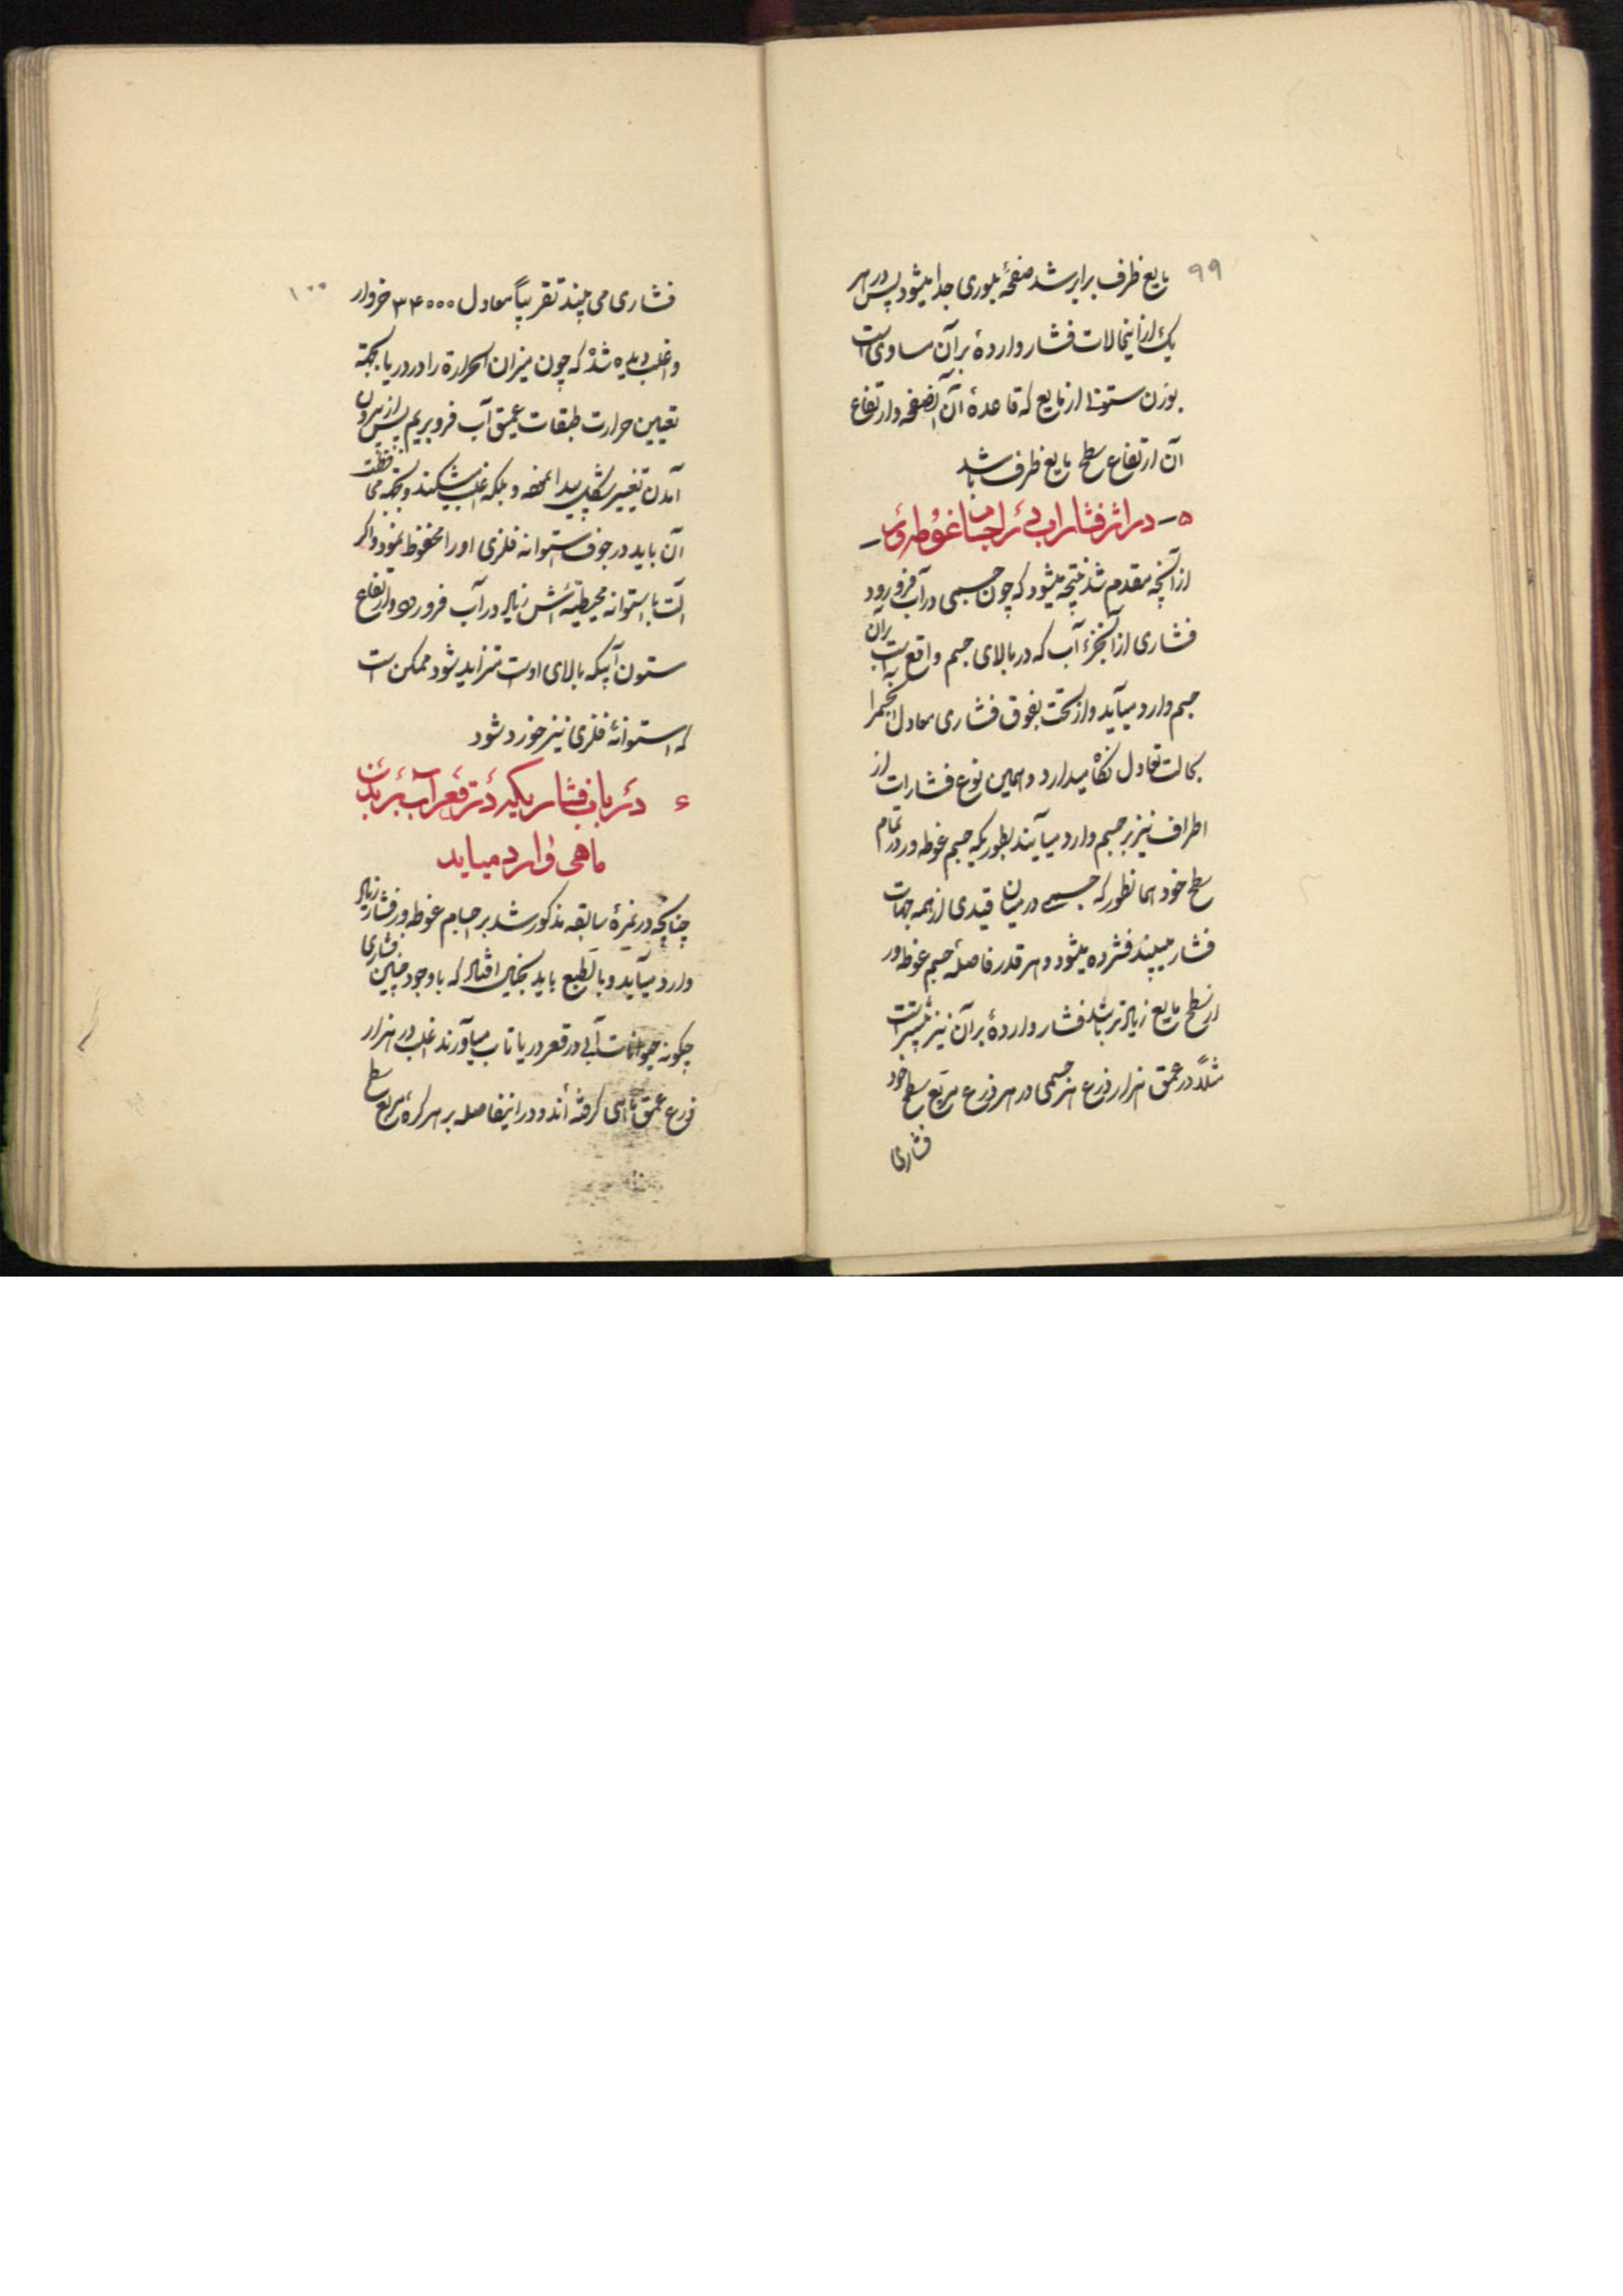 ۹۹
مایع ظرف برابر شد صفحهٔ بلوری جدا میشود پس در هر
یک از اینحالات فشار واردهٔ بر آن مساوی است
بوزن ستونی از مایع که قاعدهٔ آن آنصفحه و ارتفاع
آن ارتفاع سطح مایع ظرف باشد
۵ – در اثر فشار آب بر اجسام غوطه‌ور –
از آنچه مقدم شد نتیجه میشود که چون جسمی در آب فرو رود
فشاری از آنجزء آب که در بالای جسم واقع است بر آن
جسم وارد میآید و از تحت بفوق فشاری معادل آنجسم را
بحالت تعادل نگاه میدارد و همین نوع فشارات از
اطراف نیز بر جسم وارد میآیند بطوریکه جسم غوطه‌ور در تمام
سطح خود همانطور که جسمی در میان قیدی از همه جهات
فشار میبیند فشرده میشود و هر قدر فاصلهٔ جسم غوطه‌ور
از سطح مایع زیادتر باشد فشار واردهٔ بر آن نیز بیشتر است
مثلاً در عمق هزار ذرع هر جسمی در هر ذرع مربع سطح خود
فشاری
۱۰۰
فشاری می بیند تقریباً معادل ۳۴۰۰۰ خروار
و اغلب دیده شده که چون میزان الحرارة را در دریا بجهة
تعیین حرارت طبقات عمیق آب فرو بریم پس از بیرون
آمدن تغییر شکل پیدا نموده و بلکه اغلب میشکند و بجهة محافظت
آن باید در جوف استوانه فلزی او را محفوظ نمود و اگر
آلت با استوانه محیطیه‌اش زیاد در آب فرو رود و ارتفاع
ستون آبیکه بالای اوست متزاید شود ممکن است
که استوانهٔ فلزی نیز خورد شود
۶ در باب فشاریکه در قعر آب بر بدن
ماهی وارد میاید
چنانچه در نمرهٔ سابقه مذکور شد بر اجسام غوطه‌ور فشار زیاد
وارد میآید و بالطبع باید بخیال افتاد که با وجود چنین فشاری
چگونه حیوانات آبی در قعر دریا تاب میآورند اغلب در هزار
ذرع عمق ماهی گرفته‌اند و در اینفاصله بر هر گره مربع سطح